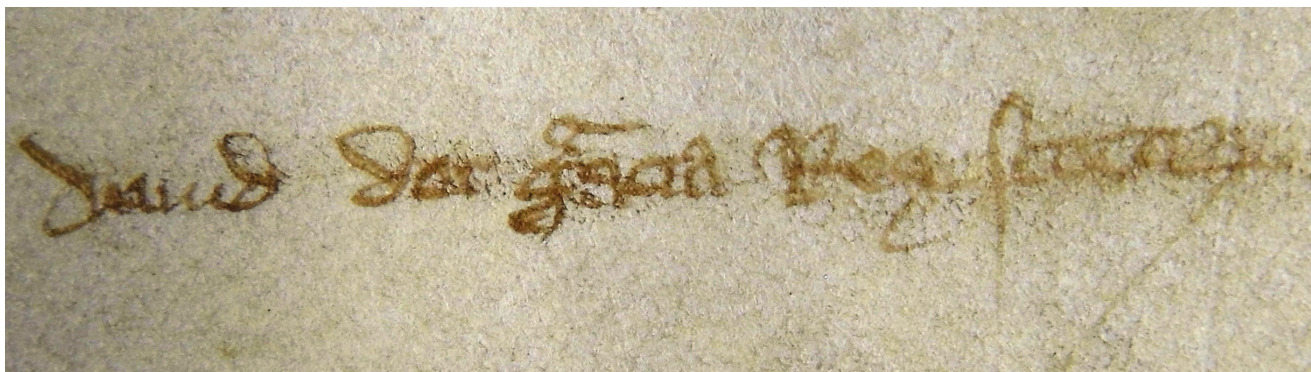 Dauid dei gracia Rex scottoꝝ